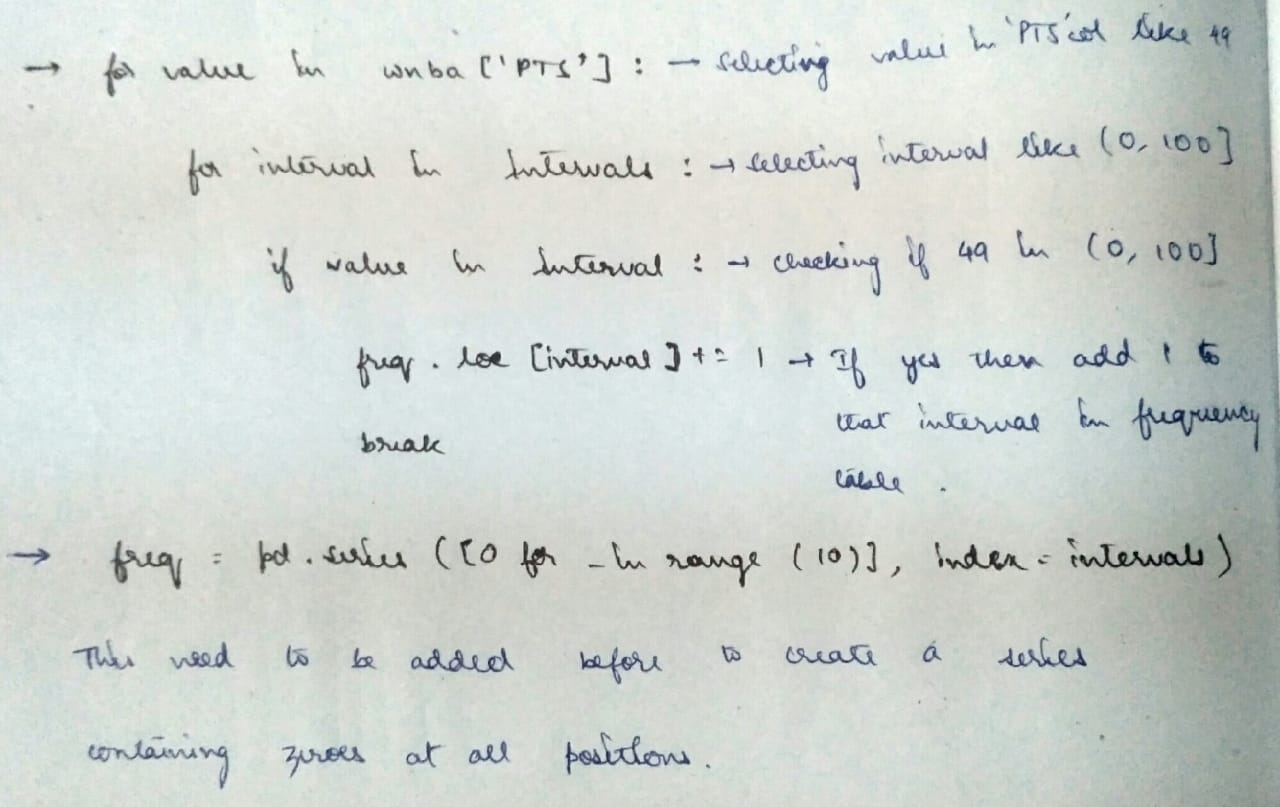 → for value in wnba ['PTS'] : → selecting value in 'PTS' col like 49
for interval in Intervals : → selecting interval like (0, 100]
if value in Interval : → checking if 49 in (0, 100]
freq . loc [interval ] += 1 → If yes then add 1 to
that interval in frequency
break
table .
→ freq = pd . series ([0 for _ in range (10)], index = intervals)
This need to be added before to create a series
containing zeroes at all positions.